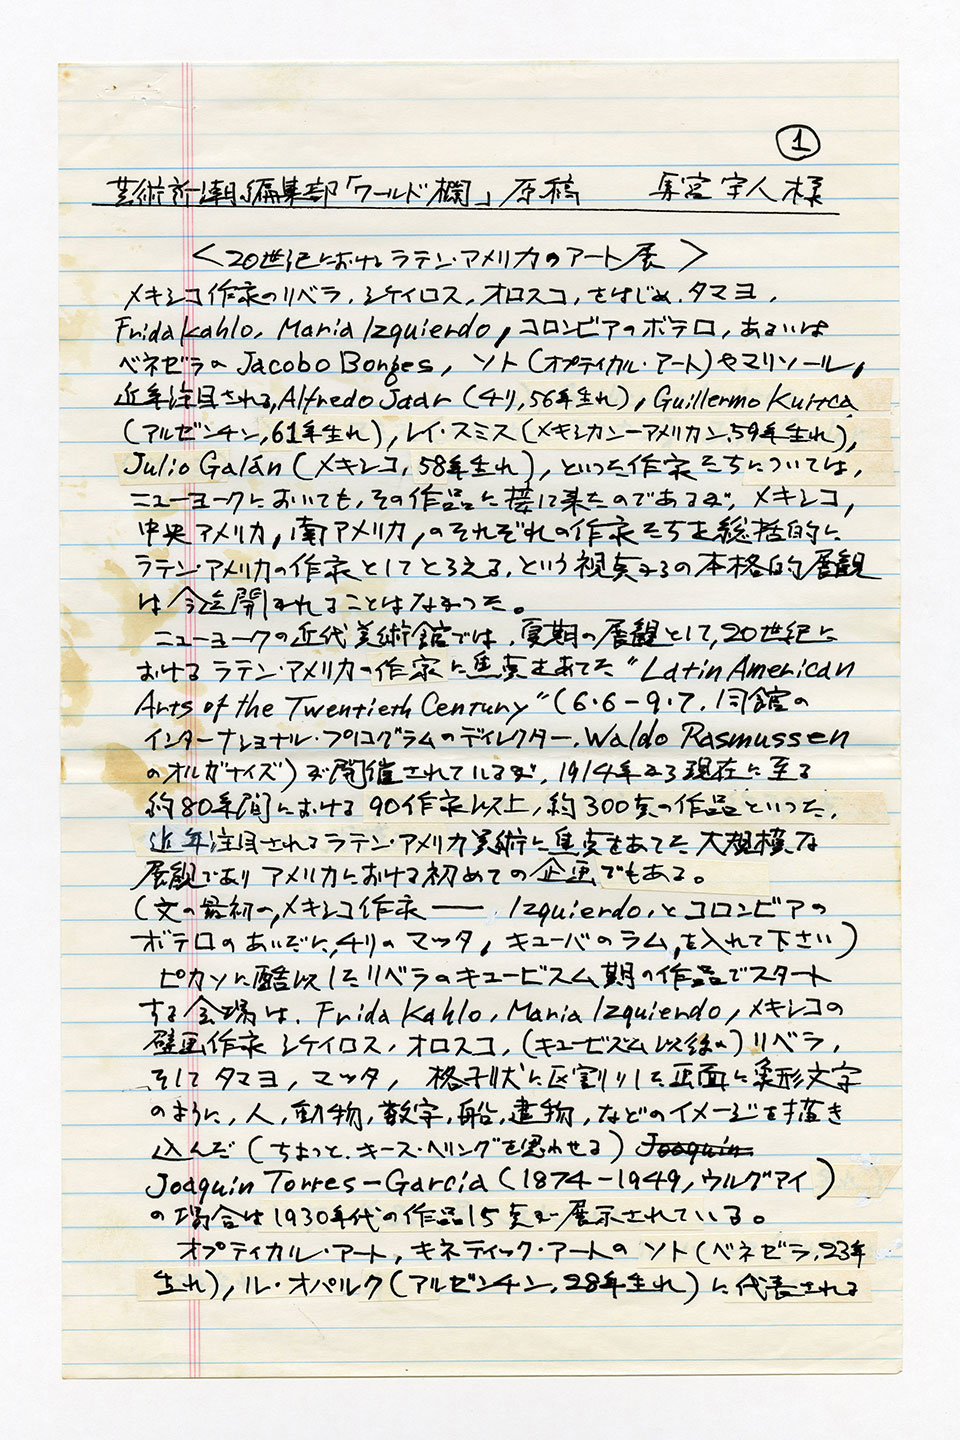 ①
芸術新潮編集部「ワールド欄」原稿 馬宮宇人様
<20世紀におけるラテン・アメリカのアート展>
メキシコ作家のリベラ,シケイロス,オロスコ,をはじめ,タマヨ,
Frida Kahlo, Maria Izquierdo, コロンビアのボテロ, あるいは
ベネゼラの Jacobo Borges, ソト(オプティカル・アート)やマリソール,
近年注目される,Alfredo Jaar(チリ,56年生れ), Guillermo Kuitca
(アルゼンチン,61年生れ), レイ・スミス(メキシカン−アメリカン,59年生れ),
Julio Galán(メキシコ, 58年生れ), といった作家たちについては,
ニューヨークにおいても,その作品に接して来たのであるが, メキシコ,
中央アメリカ, 南アメリカ, のそれぞれの作家たちを総括的に
ラテン・アメリカの作家としてとらえる,という視点からの本格的展観
は今迄開かれることはなかった。
ニューヨークの近代美術館では,夏期の展観として,20世紀に
おけるラテン・アメリカの作家に焦点をあてた“Latin American
Arts of the Twentieth Century”(6・6−9・7, 同館の
インターナショナル・プログラムのディレクター,Waldo Rasmussen
のオルガナイズ)が開催されているが, 1914年から現在に至る
約80年間における90作家以上, 約300点の作品といった,
近年注目されるラテン・アメリカ美術に焦点をあてた大規模な
展観でありアメリカにおける初めての企画でもある。
(文の最初の,メキシコ作家 —— Izquierdo,とコロンビアの
ボテロのあいだに,チリのマッタ, キューバのラム,を入れて下さい)
ピカソに酷似したリベラのキュービスム期の作品でスタート
する会場は, Frida Kahlo, Maria Izquierdo, メキシコの
壁画作家シケイロス, オロスコ, (キュービズム以後の)リベラ,
そしてタマヨ, マッタ, 格子状に区割りした画面に象形文字
のように, 人, 動物, 数字, 船, 建物, などのイメージを描き
込んだ(ちょっと,キース・ヘリングを思わせる) Joaquin
Joaquin Torres-Garcia(1874−1949, ウルグアイ)
の場合は1930年代の作品15点が展示されている。
オプティカル・アート, キネティック・アートのソト(ベネゼラ,23年
生れ), ル・オパルク(アルゼンチン,28年生れ)に代表される